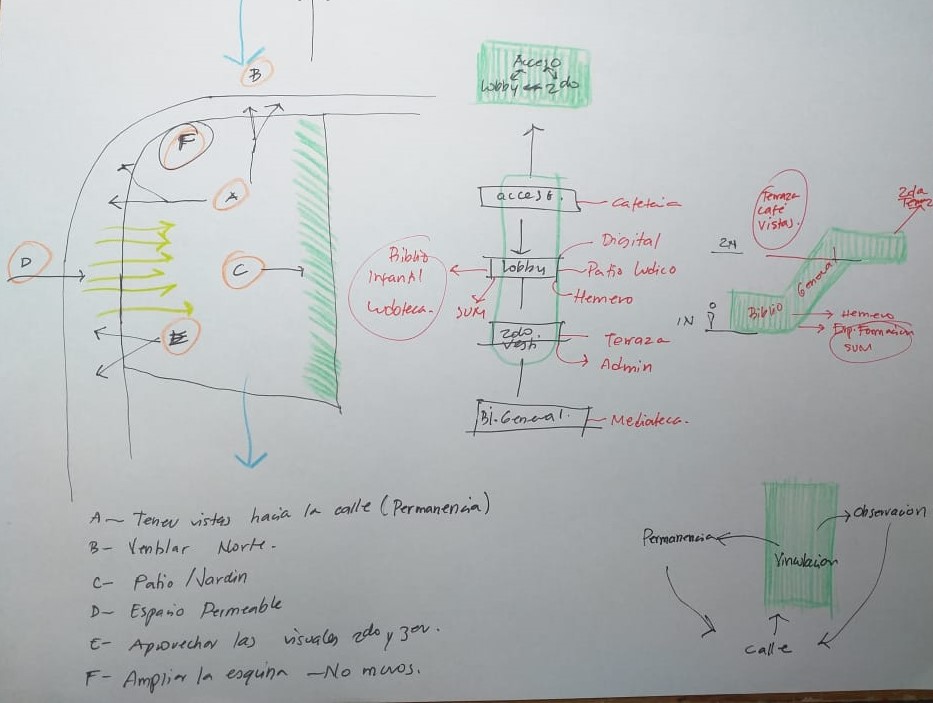 B
F
A
D
C
E
Acceso
Lobby
2do
acceso.
Cafeteria
Lobby
Digital
Patio Ludico
Hemero
Biblio
Infantil
Ludoteca.
SUM
2do.
Vesti
Terraza
Admin
Bi. General.
Mediateca.
Terraza
café
vistas.
2da
Terraz
2N
General
1N
Biblio
Hemero
Exp. Formacion
SUM
Permanencia
Observacion
Vinculacion
calle
A- Tener vistas hacia la calle (Permanencia)
B- Ventilar Norte.
C- Patio / Jardin
D- Espacio Permeable
E- Aprovechar las visuales 2do y 3er.
F- Ampliar la esquina - No muros.